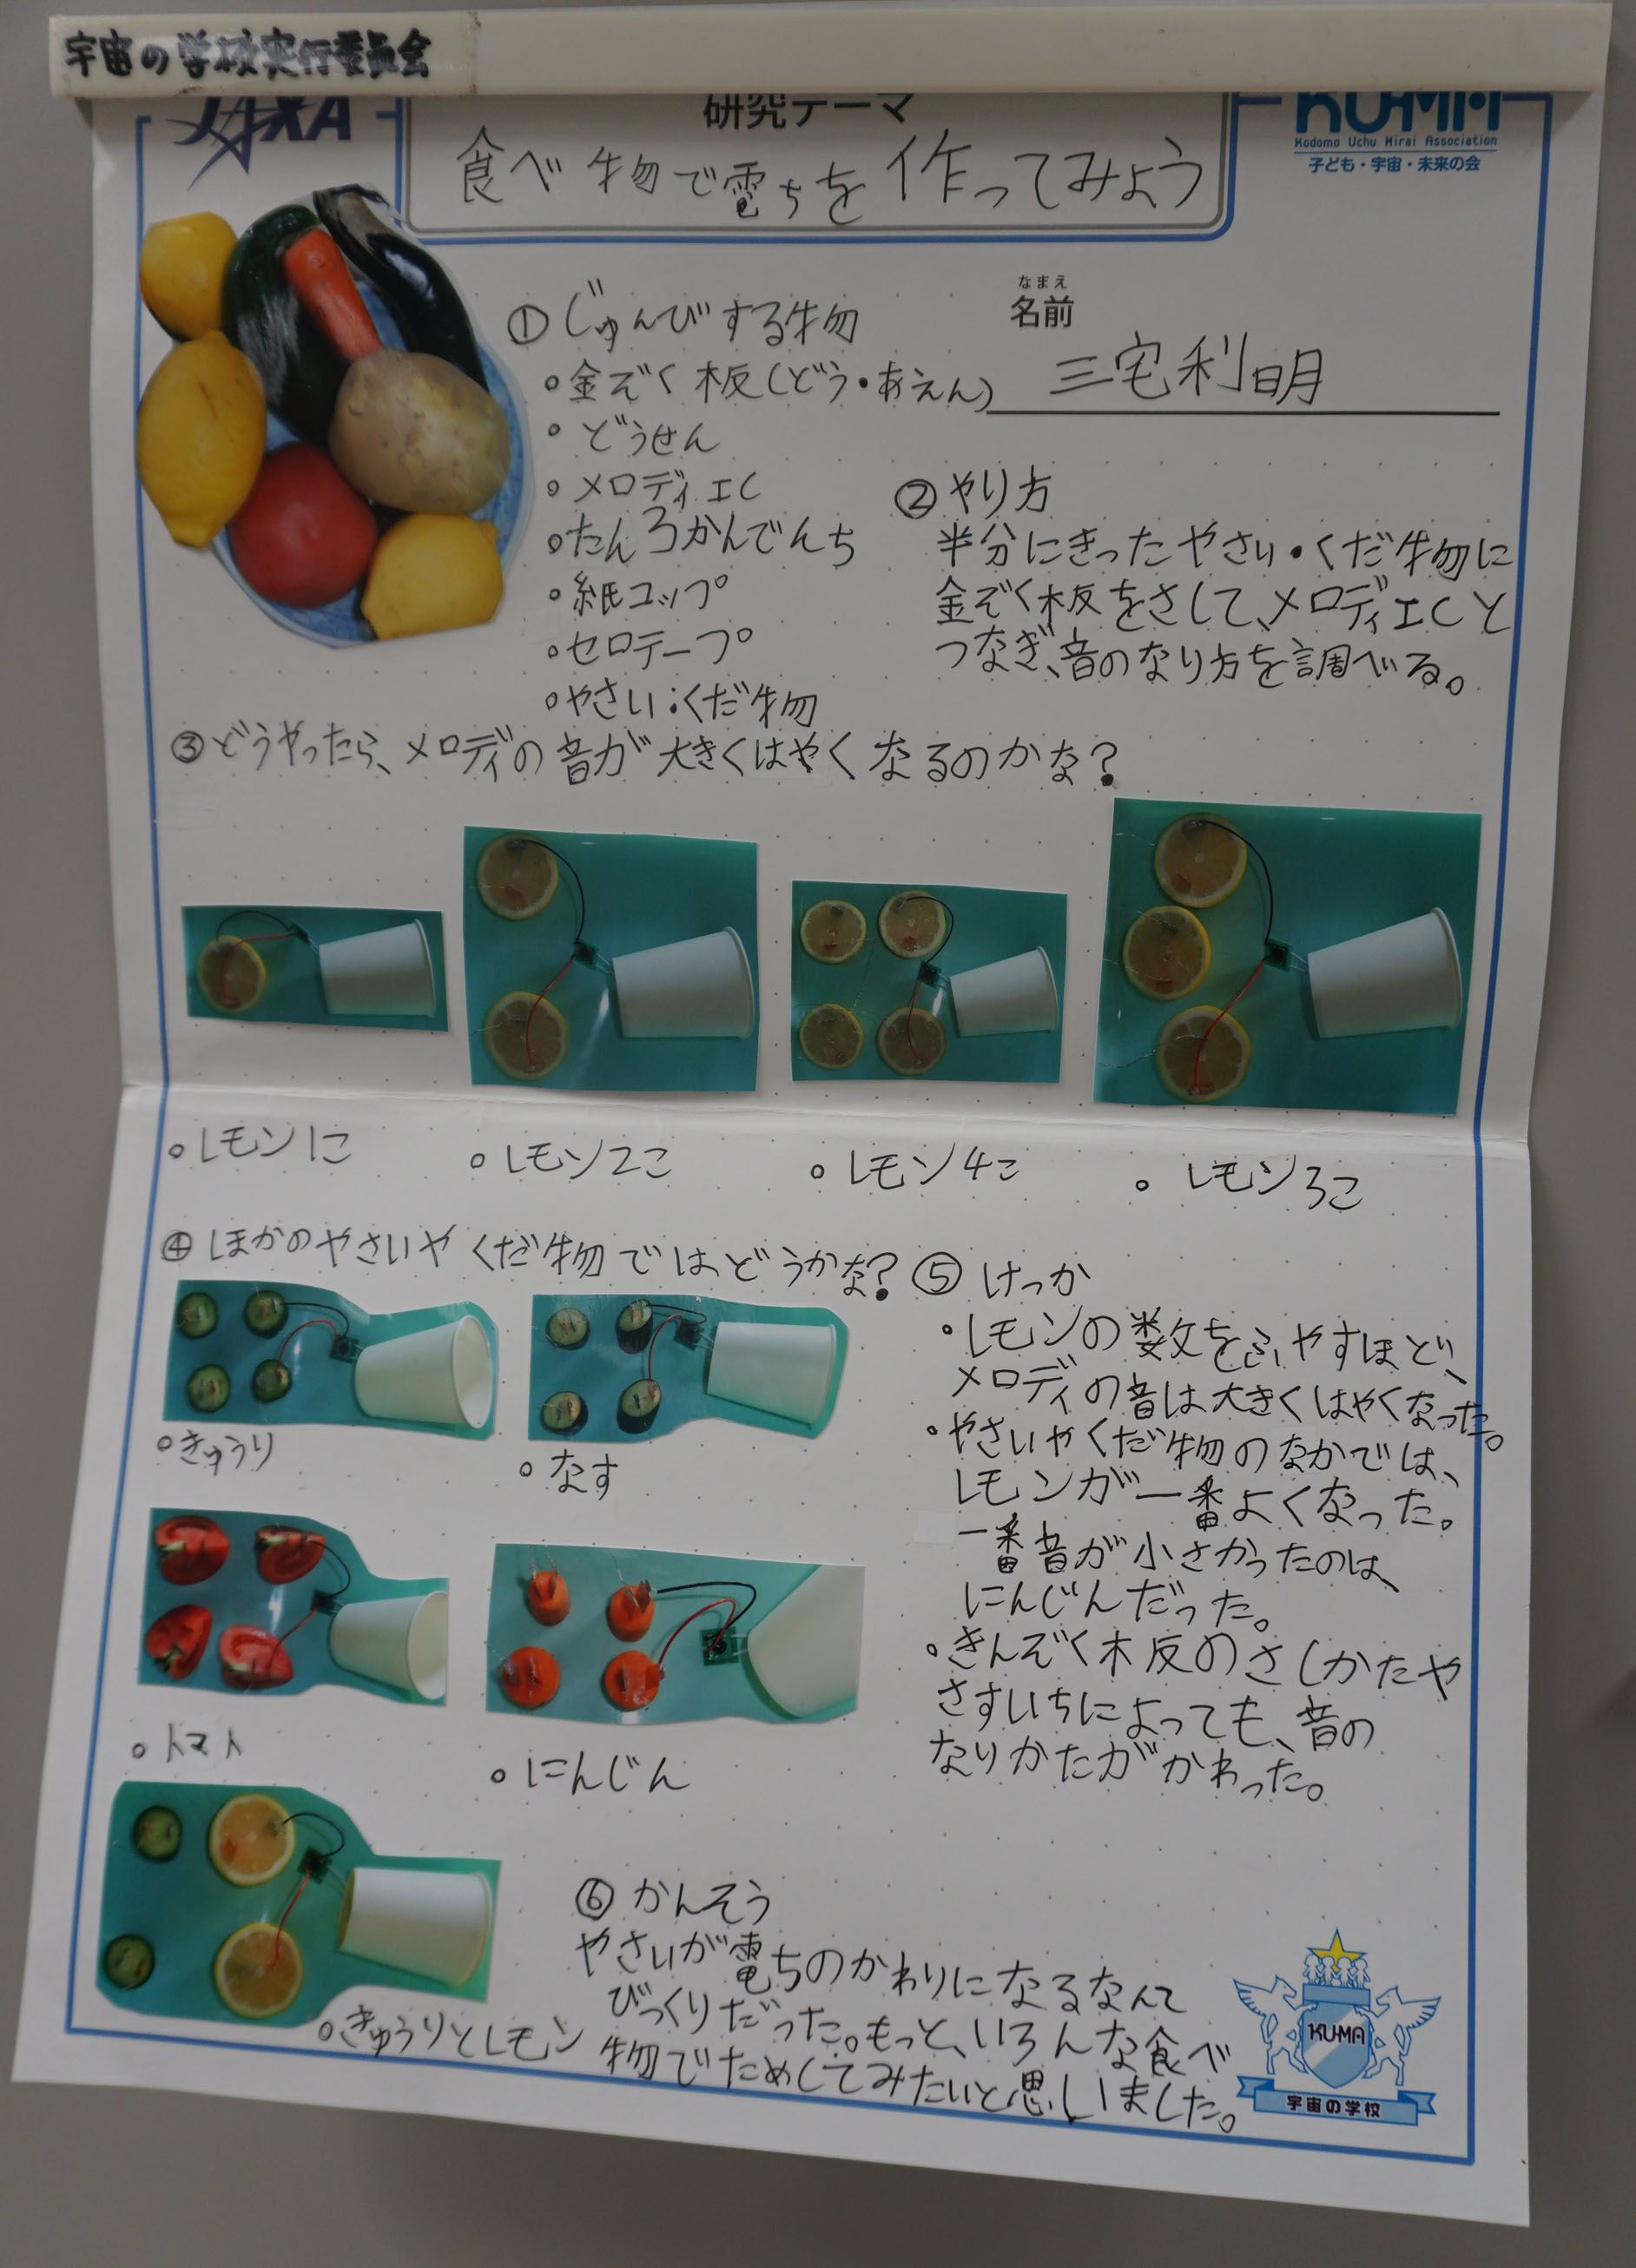 宇宙の学校実行委員会
JAXA
研究テーマ
KUMA
Kodomo Uchu Mirai Association
子ども・宇宙・未来の会
食べ物で電ちを作ってみよう
なまえ
名前
三宅利明
①じゅんびする物
・金ぞく板(どう・あえん)
・どうせん
・メロディIC
・たん3かんでんち
・紙コップ
・セロテープ
・やさい・くだ物
②やり方
半分にきったやさい・くだ物に
金ぞく板をさして、メロディICと
つなぎ、音のなり方を調べる。
③どうやったら、メロディの音が大きくはやくなるのかな?
・レモン1こ
・レモン2こ
・レモン4こ
・レモン3こ
④ほかのやさいやくだ物ではどうかな?
・きゅうり
・なす
・トマト
・にんじん
・きゅうりとレモン
⑤けっか
・レモンの数をふやすほど、
メロディの音は大きくはやくなった。
・やさいやくだ物のなかでは、
レモンが一番よくなった。
一番音が小さかったのは、
にんじんだった。
・きんぞく板のさしかたや
さすいちによっても、音の
なりかたがかわった。
⑥かんそう
やさいが電ちのかわりになるなんて
びっくりだった。もっと、いろんな食べ
物でためしてみたいと思いました。
KU-MA
宇宙の学校